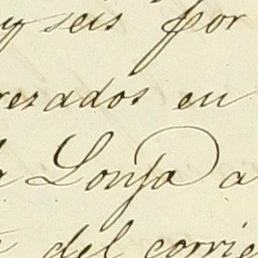 y seis por
resados en
a Lonja a
del corrie